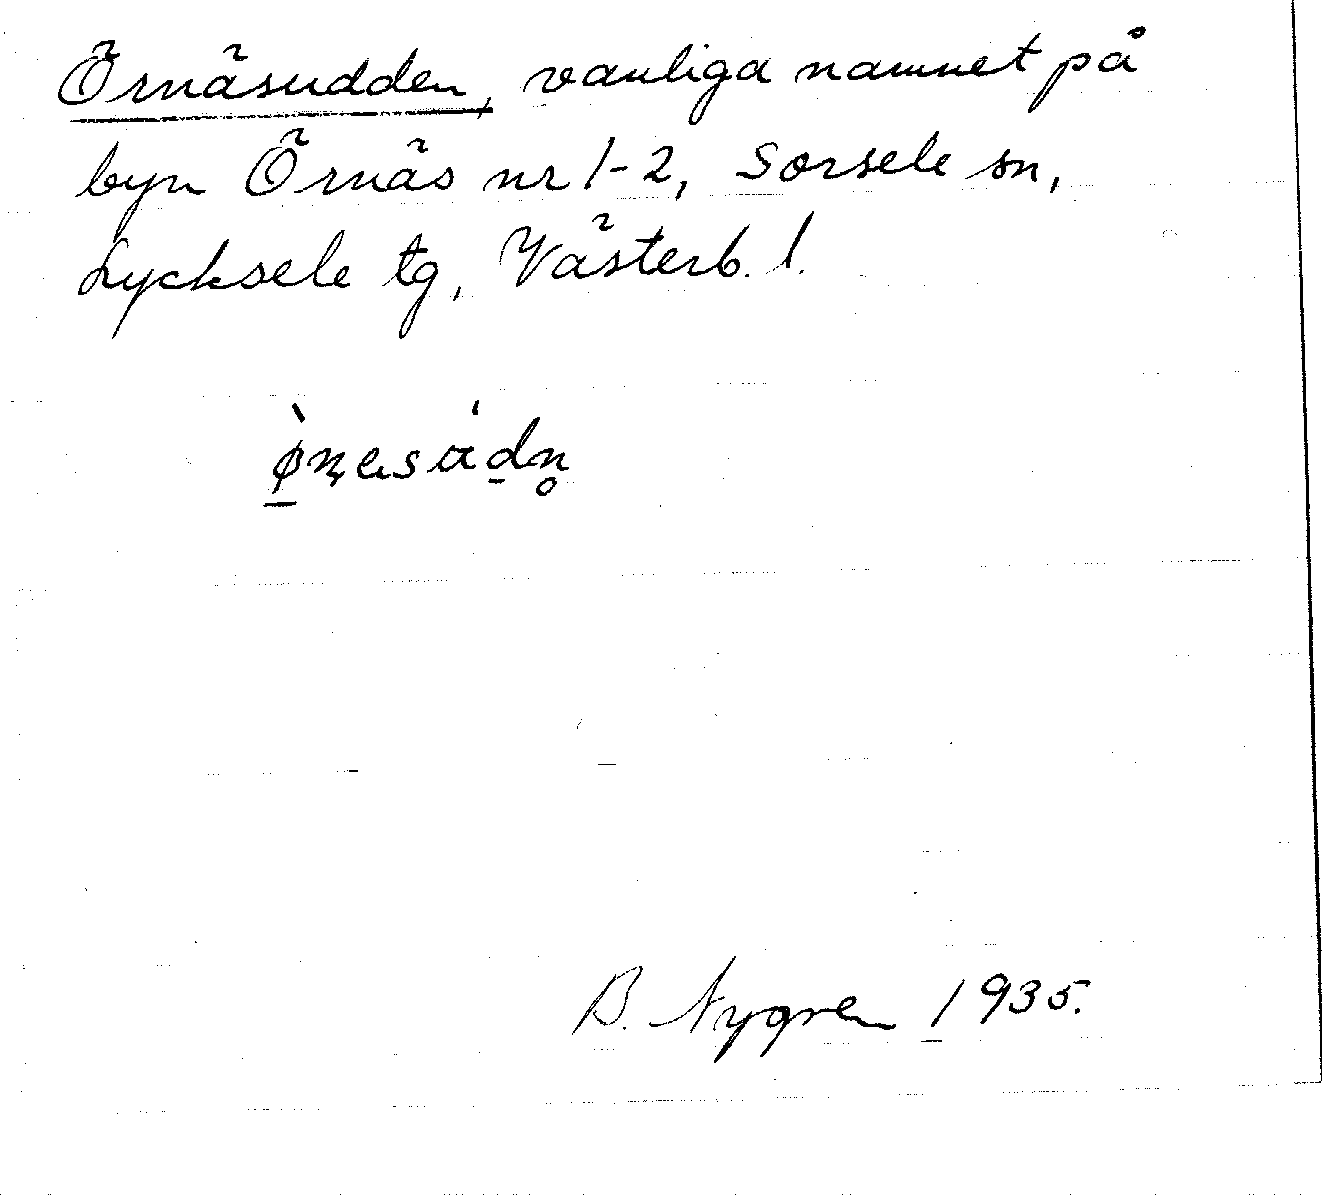 Örnäsudden, vanliga namnet på
byn Örnäs nr 1-2, Sorsele sn,
Lycksele tg, Västerb. l.
B. Nygren 1935.